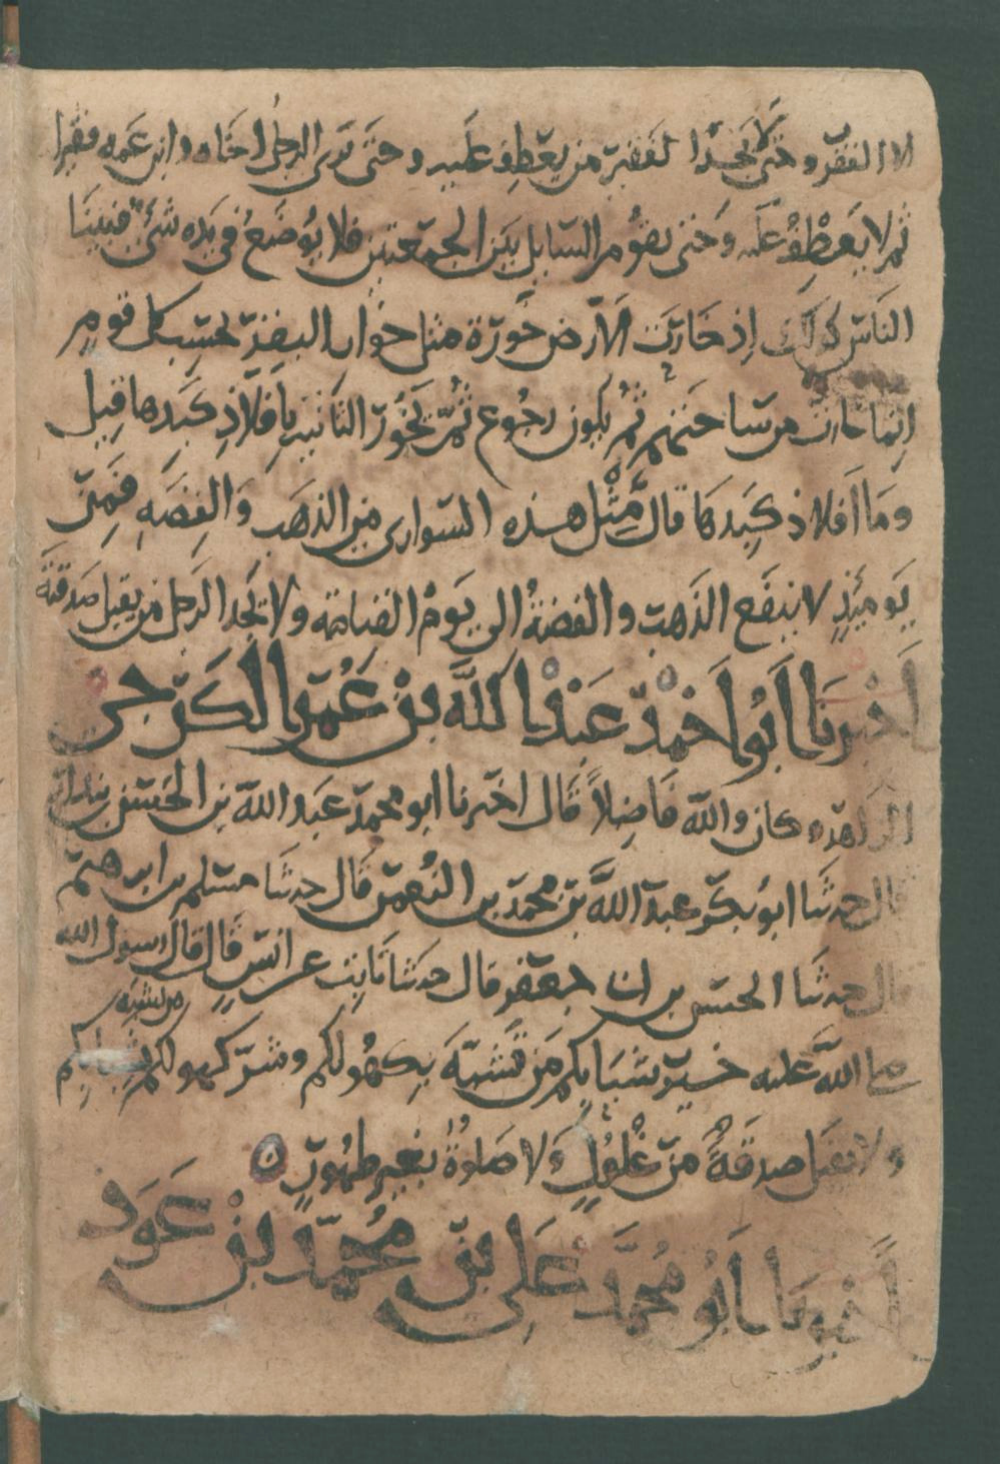 لا الفقر وحتى لا يجد الفقير من يعطف عليه وحتى ترى الرجل اخاه وابن عمه فقيرا
ثم لا يعطف عليه وحتى يقوم السايل بين الجمعتين فلا يوضع في يده شئ فبينا
الناس كذلك إذ خارت الارض خورة مثل خوار البقر يحسب كل قوم
انما خارت من ساحتهم ثم يكون رجوع ثم تخور الثانية بافلاذ كبدها قيل
وما افلاذ كبدها قال مثل هذه السواري من الذهب والفضه فمن
يوميذ لا ينفع الذهب والفضة الى يوم القيامة ولا يجد الرجل من يقبل صدقته
اخبرنا ابو احمد عبد الله بن عمر الكرجي
كان والله فاضلا قال اخبرنا ابو محمد عبد الله بن الحسن بن
قال حدثنا ابو بكر عبد الله بن محمد بن النعمن قال حدثنا مسلم بن ابرهيم
قال حدثنا الحسن بن ابي جعفر قال حدثنا ثابت عن انس قال قال رسول الله
صلى الله عليه خير شبابكم من تشبه بكهولكم وشر كهولكم من تشبه بشبابكم
ولا تقبل صدقة من غلول ولا صلوة بغير طهور
اخبرنا ابو محمد علي بن محمد بن عود